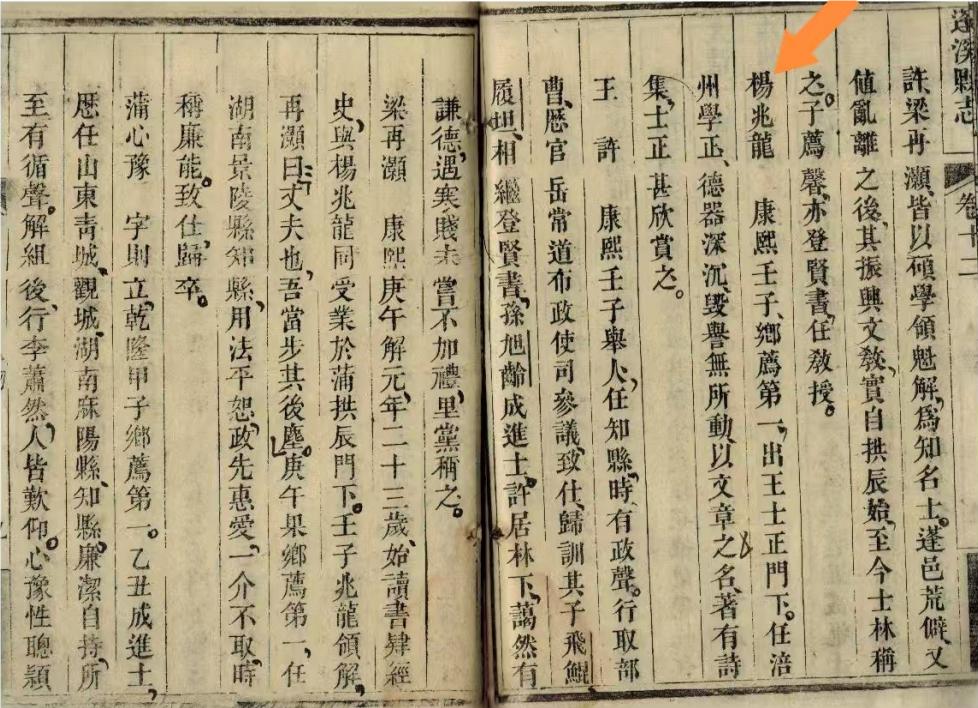 蓬溪縣志
卷十二
許、梁再灝、皆以碩學領魁解、爲知名士。蓬邑荒僻、又
値亂離之後、其振興文教、實自拱辰始、至今士林稱
之。子薦馨、亦登賢書、任教授。
楊兆龍　康熙壬子、鄉薦第一、出王士正門下。任涪
州學正、德器深沉、毀譽無所動、以文章之名、著有詩
集、士正甚欣賞之。
王　許　康熙壬子舉人、任知縣、時有政聲。行取部
曹、歷官岳常道布政使司參議、致仕、歸訓其子飛鯤
履坦、相繼登賢書、孫旭齡成進士。許居林下、藹然有
謙德、遇寒賤未嘗不加禮、里黨稱之。
梁再灝　康熙庚午解元、年二十三歲、始讀書肄經
史、與楊兆龍同受業於蒲拱辰門下。壬子兆龍領解、
再灝曰、丈夫也、吾當步其後塵。庚午果鄉薦第一、任
湖南景陵縣知縣、用法平恕、政先惠愛、一介不取、時
稱廉能。致仕歸、卒。
蒲心豫　字則立、乾隆甲子鄉薦第一。乙丑成進士、
歷任山東青城、觀城、湖南麻陽縣、知縣。廉潔自持、所
至有循聲。解組後、行李蕭然、人皆歎仰。心豫性聰穎